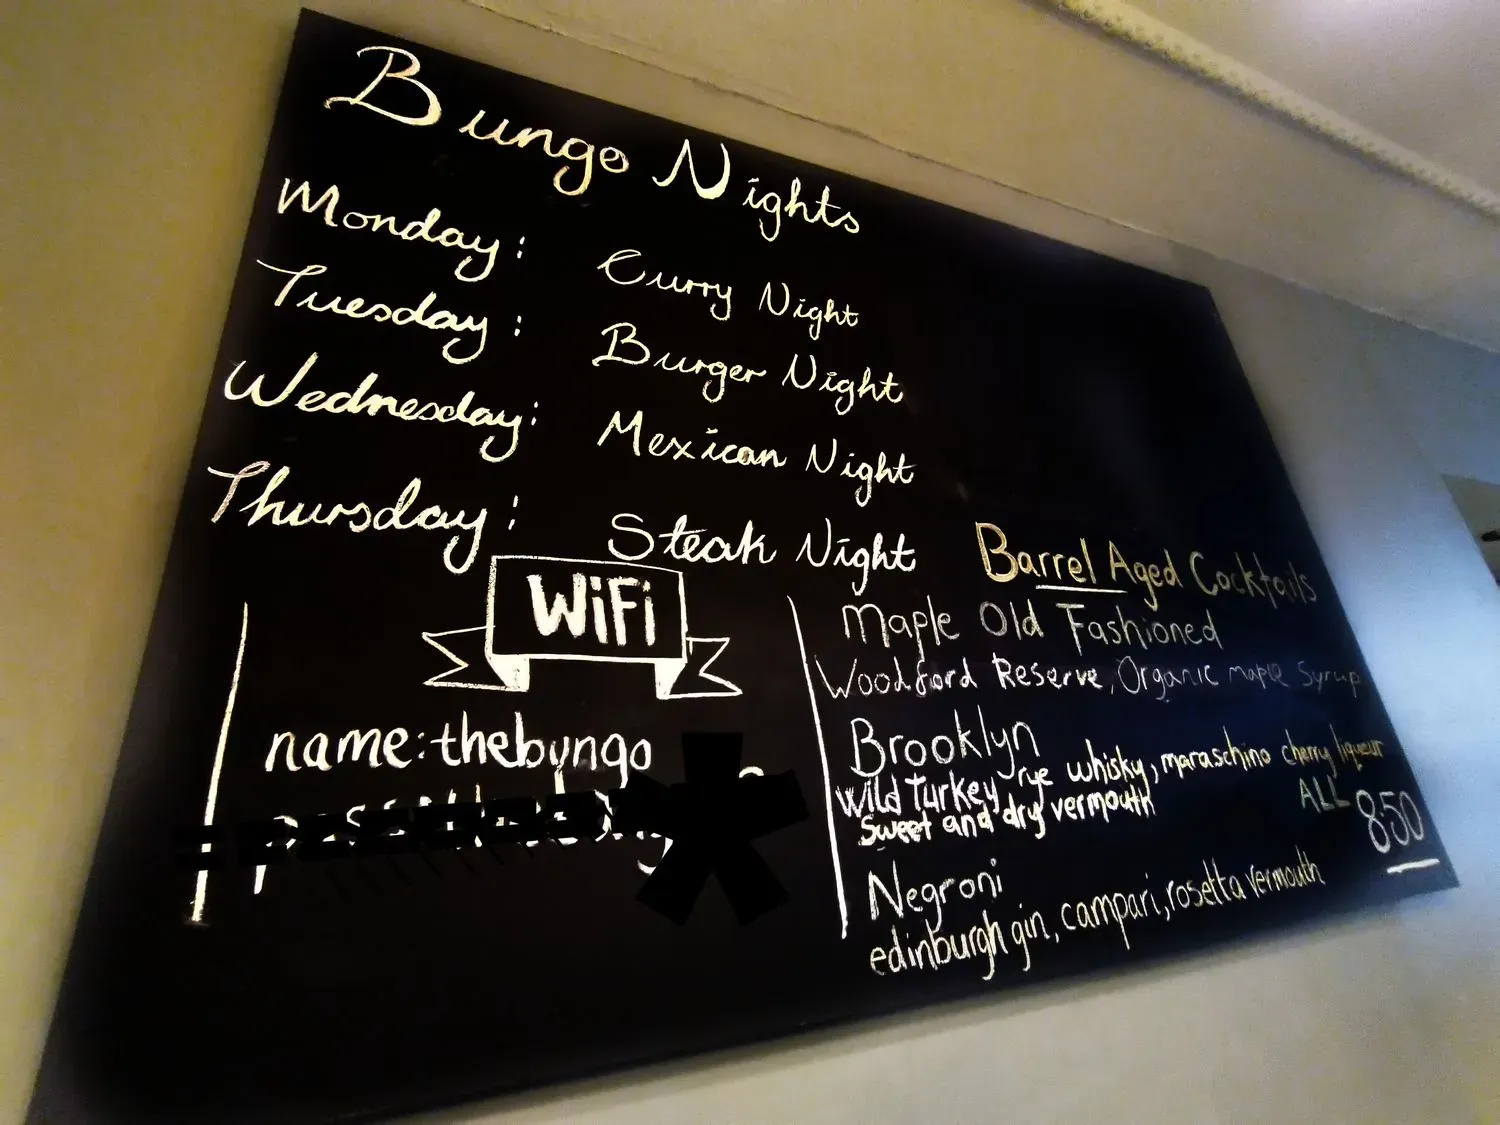 Bungo Nights
Monday: Curry Night
Tuesday: Burger Night
Wednesday: Mexican Night
Thursday: Steak Night
WiFi
name:thebungo
Barrel Aged Cocktails
Maple Old Fashioned
Woodford Reserve, Organic maple Syrup
Brooklyn
Wild Turkey rye whisky, maraschino cherry liqueur
Sweet and dry vermouth
ALL 8.50
Negroni
edinburgh gin, campari, rosetta vermouth